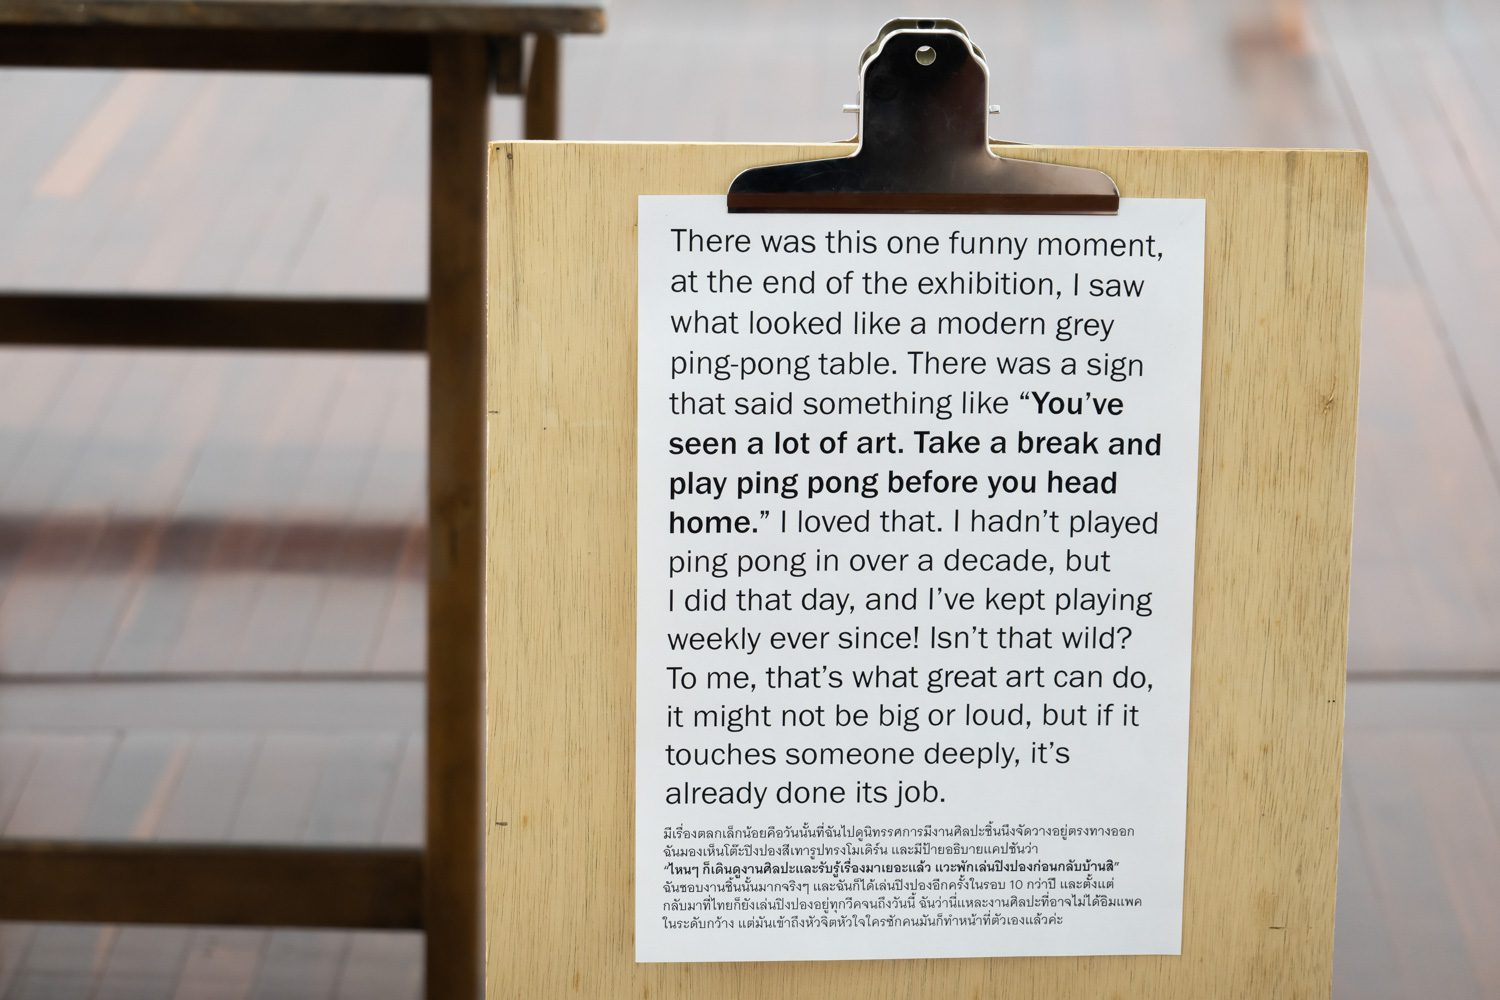 There was this one funny moment,
at the end of the exhibition, I saw
what looked like a modern grey
ping-pong table. There was a sign
that said something like “You’ve
seen a lot of art. Take a break and
play ping pong before you head
home.” I loved that. I hadn’t played
ping pong in over a decade, but
I did that day, and I’ve kept playing
weekly ever since! Isn’t that wild?
To me, that’s what great art can do,
it might not be big or loud, but if it
touches someone deeply, it’s
already done its job.
มีเรื่องตลกเล็กน้อยคือวันนั้นที่ฉันไปดูนิทรรศการมีงานศิลปะชิ้นนึงจัดวางอยู่ตรงทางออก
ฉันมองเห็นโต๊ะปิงปองสีเทารูปทรงโมเดิร์น และมีป้ายอธิบายแคปชันว่า
“ไหนๆ ก็เดินดูงานศิลปะและรับรู้เรื่องมาเยอะแล้ว แวะพักเล่นปิงปองก่อนกลับบ้านสิ”
ฉันชอบงานชิ้นนั้นมากจริงๆ และฉันก็ได้เล่นปิงปองอีกครั้งในรอบ 10 กว่าปี และตั้งแต่
กลับมาที่ไทยก็ยังเล่นปิงปองอยู่ทุกวีคจนถึงวันนี้ ฉันว่านี่แหละงานศิลปะที่อาจไม่ได้อิมแพค
ในระดับกว้าง แต่มันเข้าถึงหัวจิตหัวใจใครซักคนมันก็ทำหน้าที่ตัวเองแล้วค่ะ